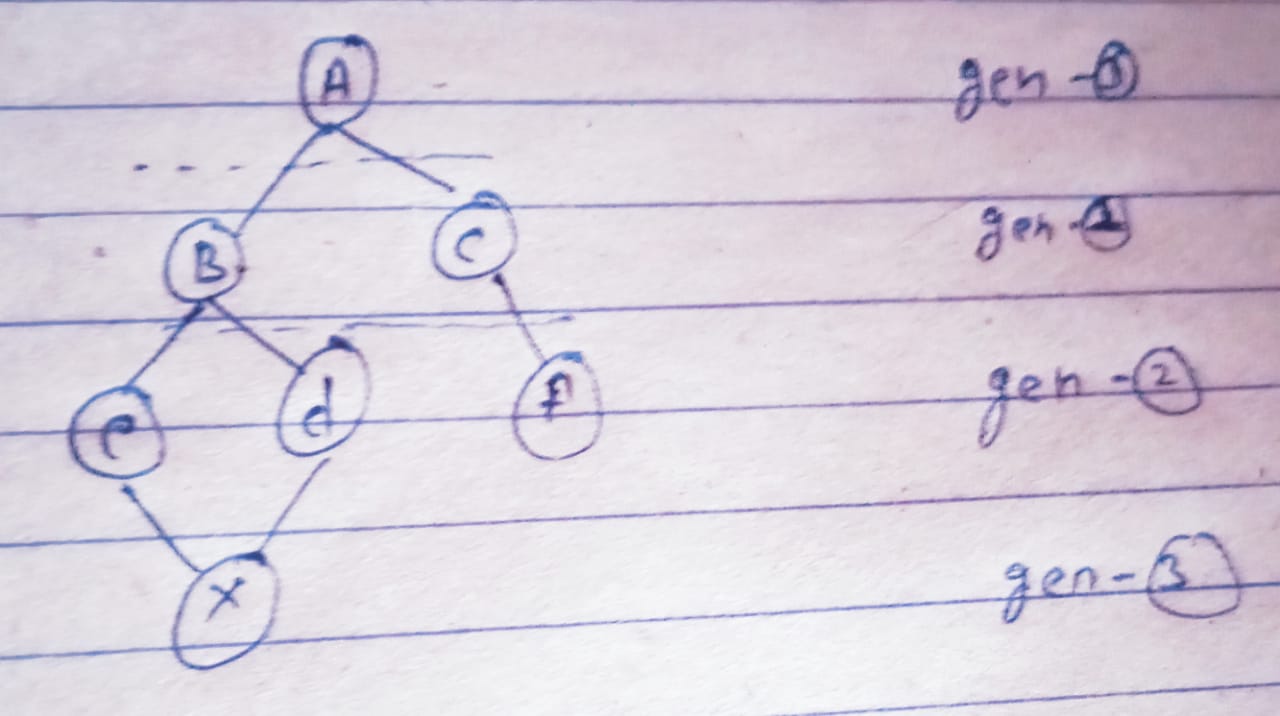 A gen-
B C gen-1
e d f gen-2
X gen-3